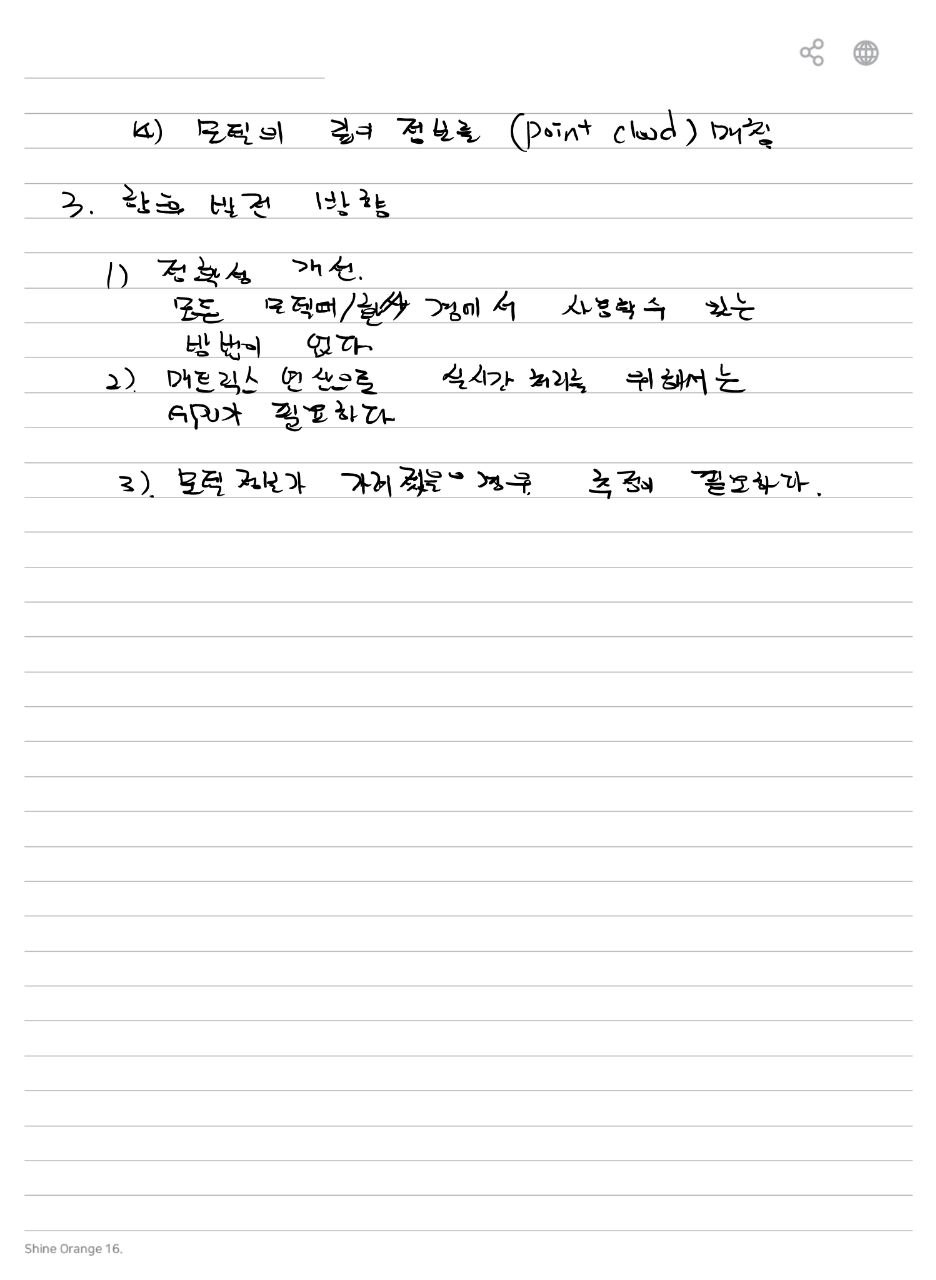 4) 모델의 결여 정보를 (point cloud) 매칭
3. 향후 발전 방향
1) 정확성 개선.
모든 모델에/환경에서 사용할 수 있는
방법이 없다
2). 매트릭스 연산으로 실시간 처리를 위해서는
GPU가 필요하다
3). 모델 정보가 가려졌을 경우 추정이 필요하다.
Shine Orange 16.